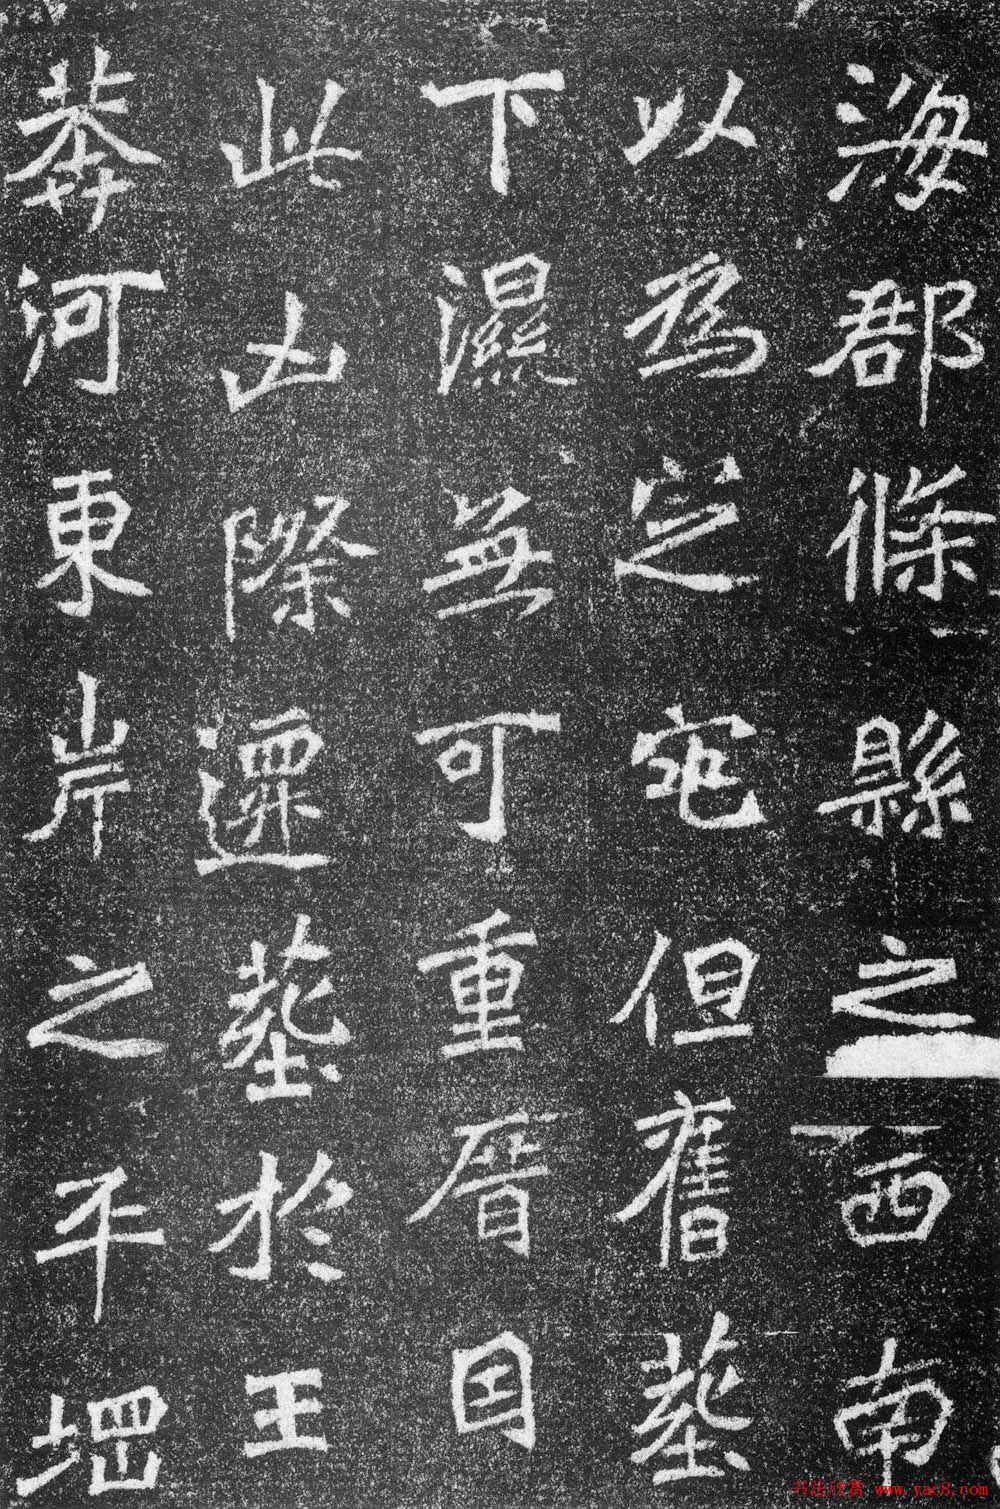 海郡條縣之西南
以爲定宅但舊塟
下濕無可重厝因
此凶際遷塟於王
莽河東岸之平堈
书法欣赏 www.yac8.com